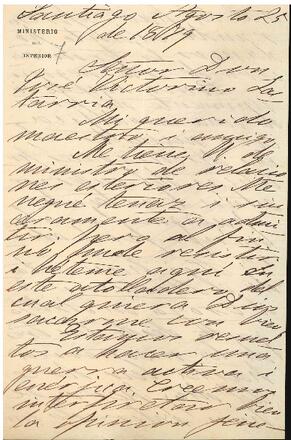 Santiago, Agosto 25
de 1879
MINISTERIO
DEL
INTERIOR
7
Señor Don
José Victorino Las
tarria
Mi querido
maestro i amigo
Me tiene U. de
ministro de relacio
nes esteriores. Me
negué tenaz i sin
ceramente a admi
tir, pero al fin
no pude resistir
i heteme aquí en
este atolladero del
cual quiera Dios
sacarme con bien
Estamos resuel
tos a hacer una
guerra activa i
enérjica. Creemos
interpretar bien
la opinion jene